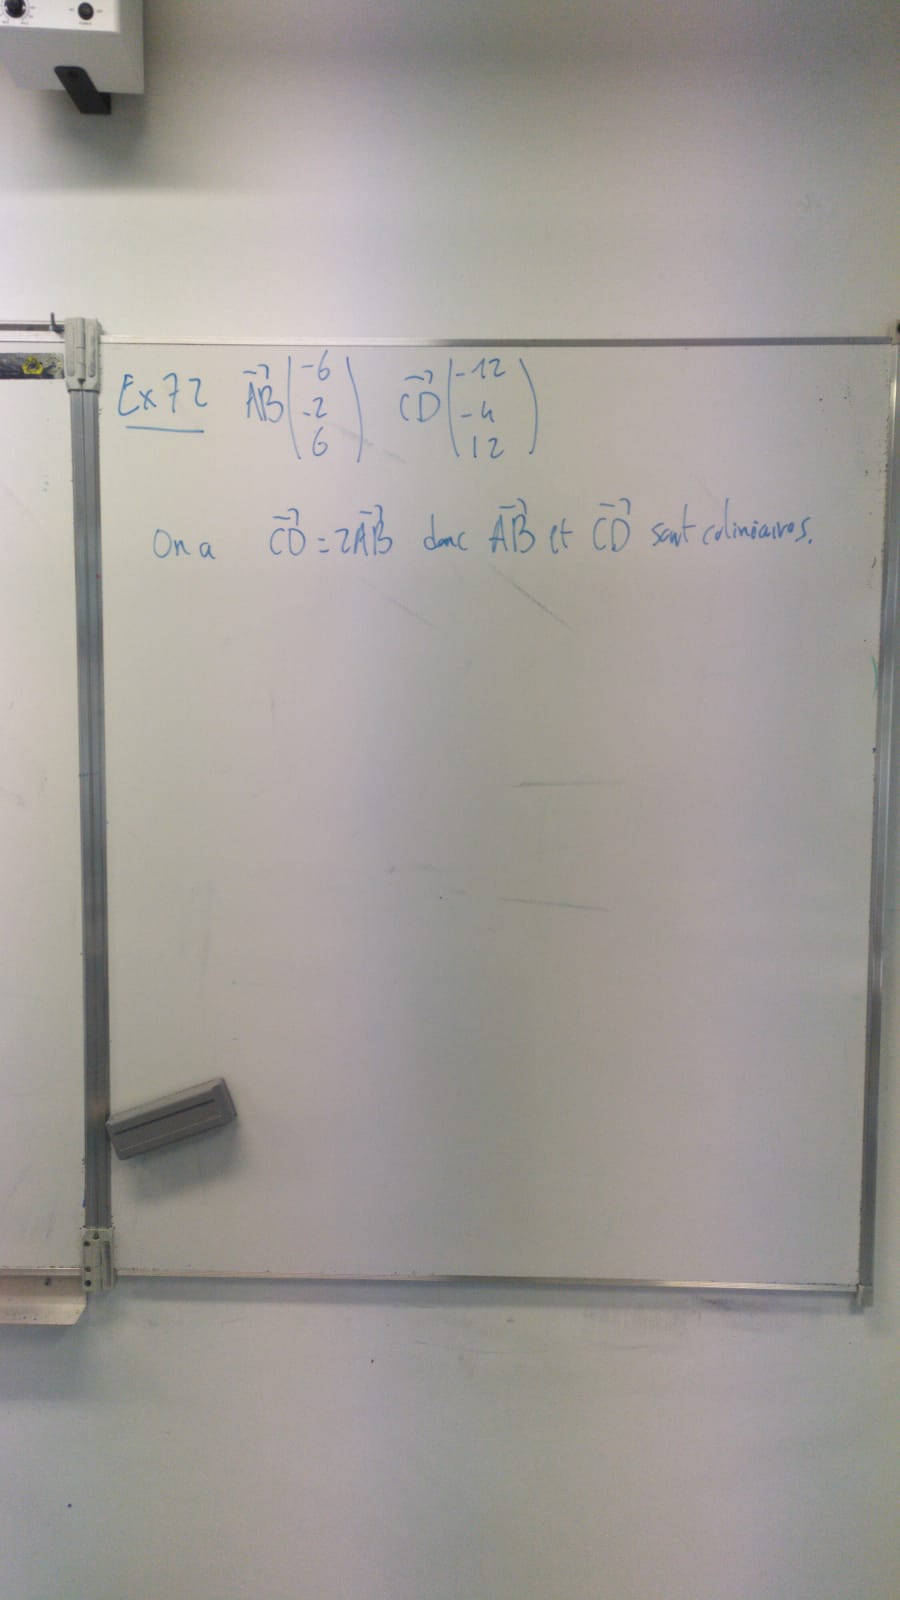 Ex 72 AB⃗ (-6 -2 6) CD⃗ (-12 -4 12)
On a CD⃗ = 2AB⃗ donc AB⃗ et CD⃗ sont colinéaires.